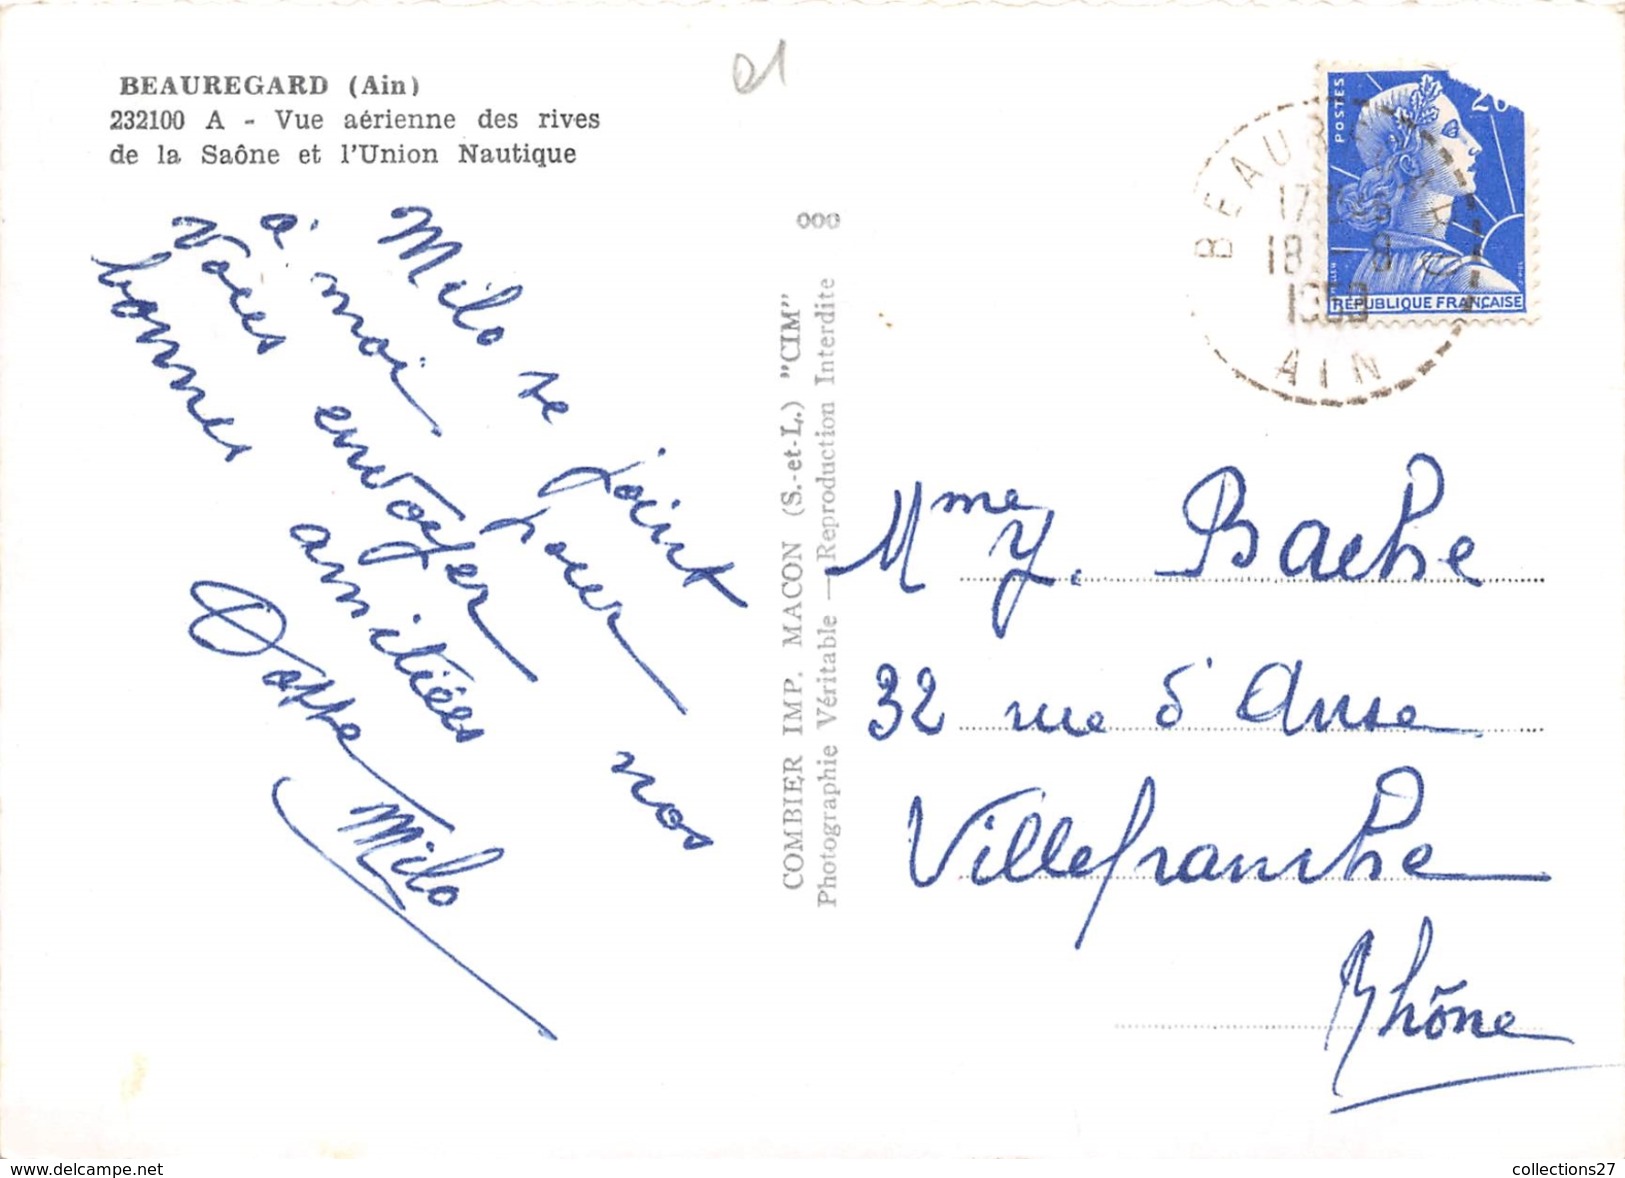 01
BEAUREGARD (Ain)
232100 A - Vue aérienne des rives
de la Saône et l'Union Nautique
Milo se joint
à moi pour
vous envoyer nos
bonnes amitiés
Milo
000
COMBIER IMP. MACON (S.-et-L.) "CIM"
Photographie Véritable — Reproduction Interdite
POSTES
20
RÉPUBLIQUE FRANÇAISE
BEAUREGARD
18 - 8
AIN
Mme Y. Bache
32 rue d'Anse
Villefranche
Rhône
www.delcampe.net
collections27